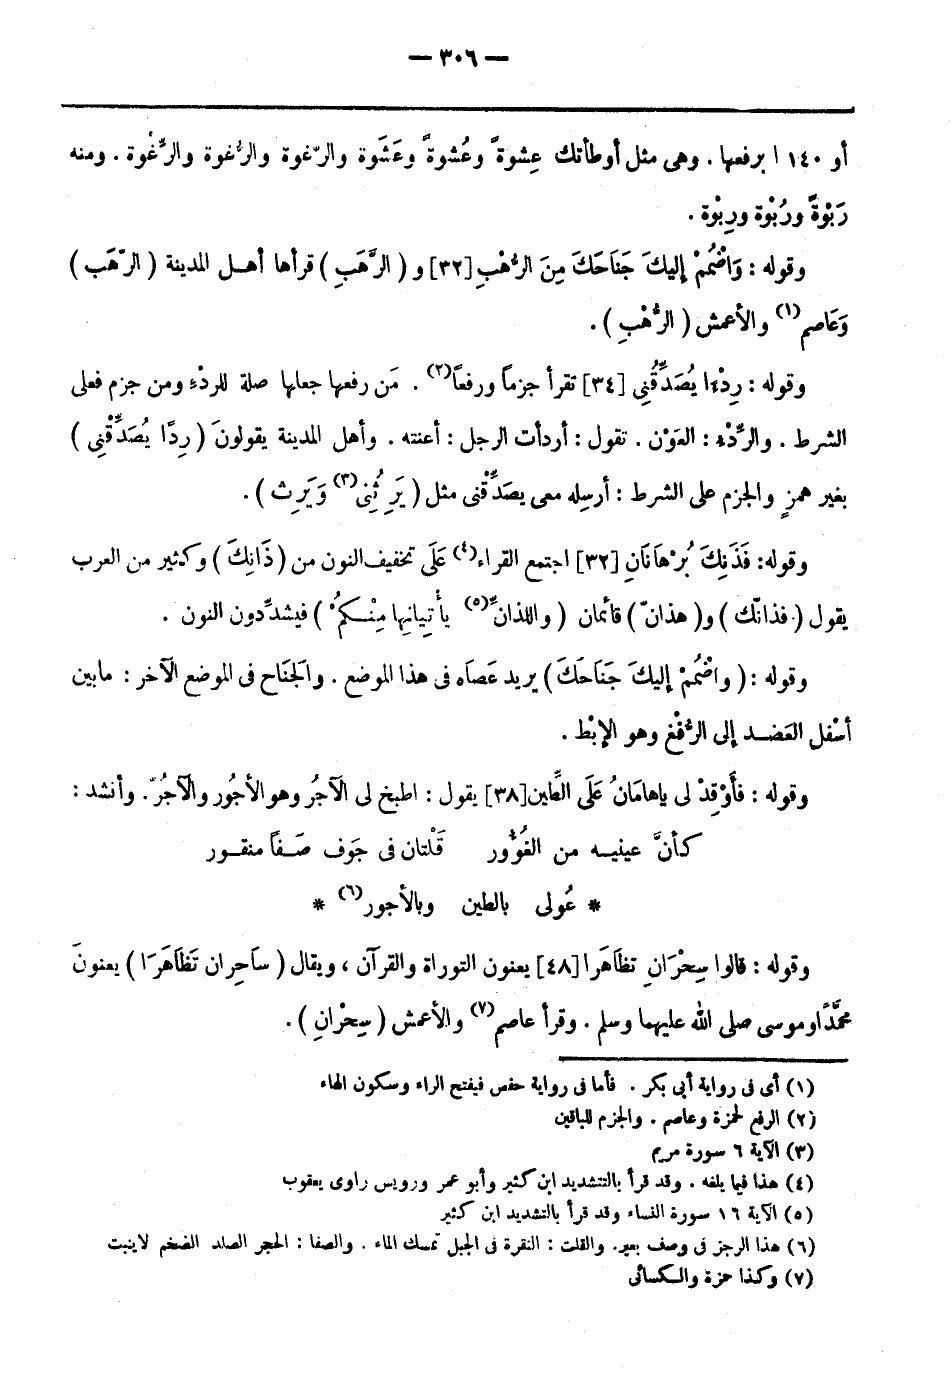 — ٣٠٦ —
أو ١٤٠ ا برفعها . وهى مثل أوطأتك عِشوةً وعُشوةً وعَشَوة والرّغوة والرُغوة والرِّغْوة . ومنه
رَبْوةً ورُبْوة ورِبْوة .
وقوله : وَاضْمُمْ إليكَ جَنَاحَكَ مِنَ الرُّهْبِ [٣٢] و ( الرَّهَبِ ) قرأها أهل المدينة ( الرّهَب )
وَعَاصم(١) والأعمش ( الرُّهْبِ ) .
وقوله : رِدْءًا يُصَدِّقُنِى [٣٤] تقرأ جزماً ورفعاً(٢) . مَن رفعها جعلها صلة للردْءِ ومن جزم فعلى
الشرط . والرِّدْء : العَوْن . تقول : أردأت الرجل : أعنته . وأهل المدينة يقولونَ ( رِدًا يُصَدِّقْنِى )
بغير همزٍ والجزم على الشرط : أرسِله معى يصَدِّقْنى مثل ( يَرِثُنِى(٣) وَيَرِث ) .
وقوله: فَذَنِكَ بُرْهَانَانِ [٣٢] اجتمع القراء(٤) عَلَى تخفيف النون من ( ذَانِكَ ) وكثير من العرب
يقول ( فذانّك ) و( هذانّ ) قائمان ( واللذانِّ(٥) يأْتِيانِها مِنْكمُ ) فيشدِّدون النون .
وقوله : ( واضْمُمْ إليكَ جَنَاحَكَ ) يريد عَصَاه فى هذا الموضع . والجَنَاح فى الموضع الآخر : مابين
أسْفل العَضد إلى الرُّفْغ وهو الإبْط .
وقوله : فأَوْقِدْ لى ياهامَانُ عَلَى الطِّين [٣٨] يقول : اطبخ لى الآجُر وهو الأجُور والآجُرّ . وأنشد :
كأنَّ عينيه من الغُوُّور قَلْتان فى جَوف صَفاً منقور
* عُولى بالطين وبالأجور(٦) *
وقوله : قالوا سِحْرَانِ تظاهَرا [٤٨] يعنون التوراة والقرآن ، ويقال ( ساَحِران تَظَاهَرَا ) يعنونَ
محمَّدًا وموسى صلى الله عليهما وسلم . وقرأ عاصم(٧) والأعمش ( سِحْرانِ ) .
(١) أى فى رواية أبى بكر . فأما فى رواية حفص فيفتح الراء وسكون الهاء
(٢) الرفع لحمزة وعاصم . والجزم للباقين
(٣) الآية ٦ سورة مريم
(٤) هذا فيما يلغه . وقد قرأ بالتشديد ابن كثير وأبو عمر ورويس راوى يعقوب
(٥) الآية ١٦ سورة النساء وقد قرأ بالتشديد ابن كثير
(٦) هذا الرجز فى وصف بعير. والقلت : النقرة فى الجبل تمسك الماء . والصفا : الحجر الصلد الضخم لاينبت
(٧) وكذا حمزة والكسائى